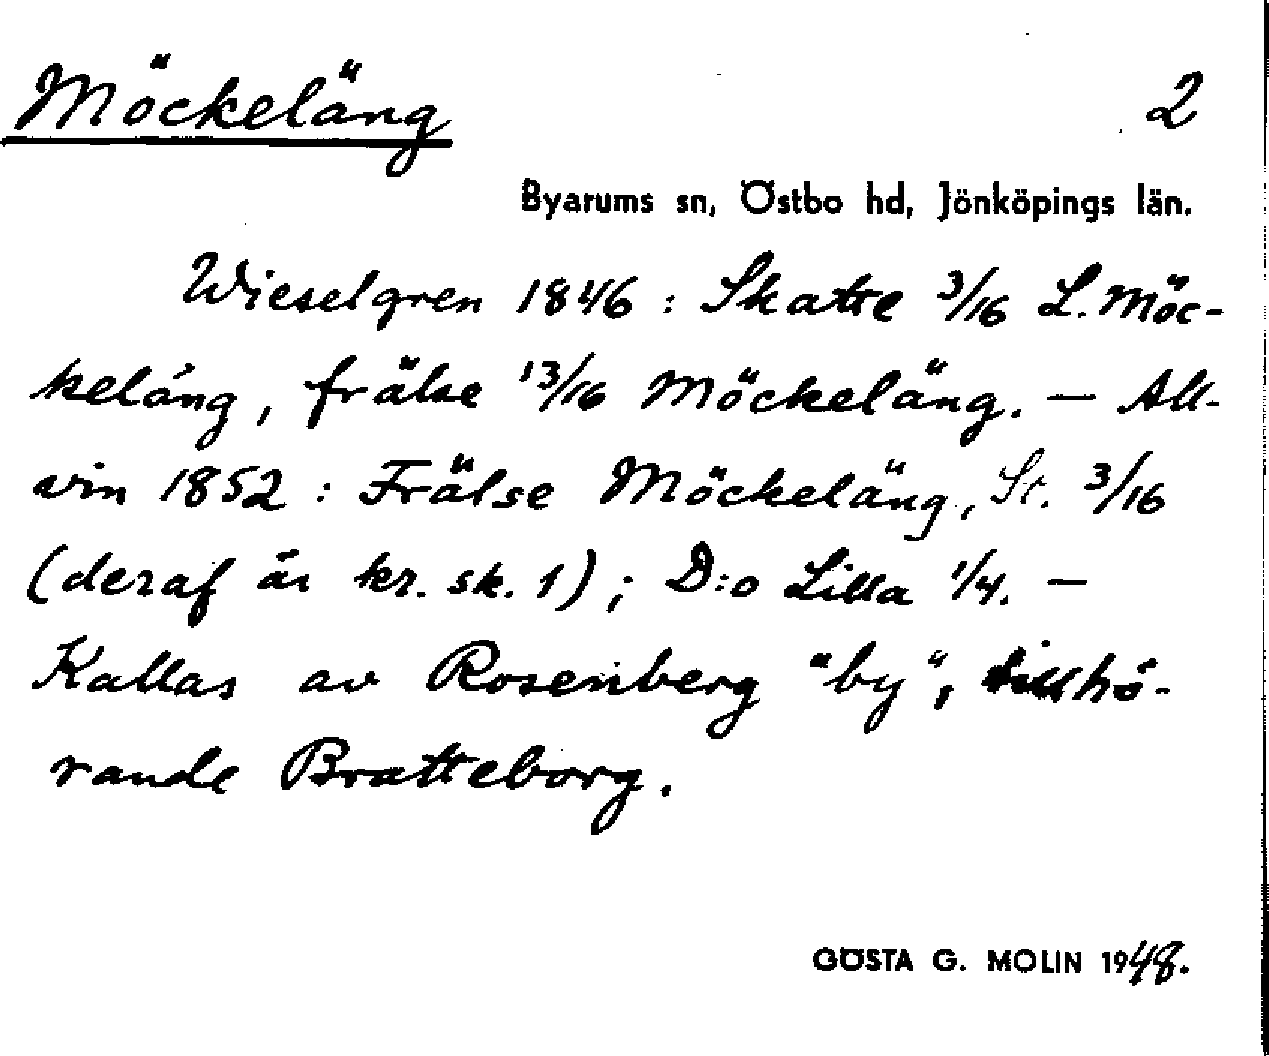 Möckeläng 2
Byarums sn, Östbo hd, Jönköpings län.
Wieselgren 1846 : Skatte 3/16 L. Möc-
keläng, frälse 13/16 Möckeläng. — All-
vin 1852 : Frälse Möckeläng, St. 3/16
(deraf är kr. sk. 1) ; D:o Lilla 1/4. —
Kallas av Rosenberg "by", tillhö-
rande Bratteborg.
GÖSTA G. MOLIN 1948.